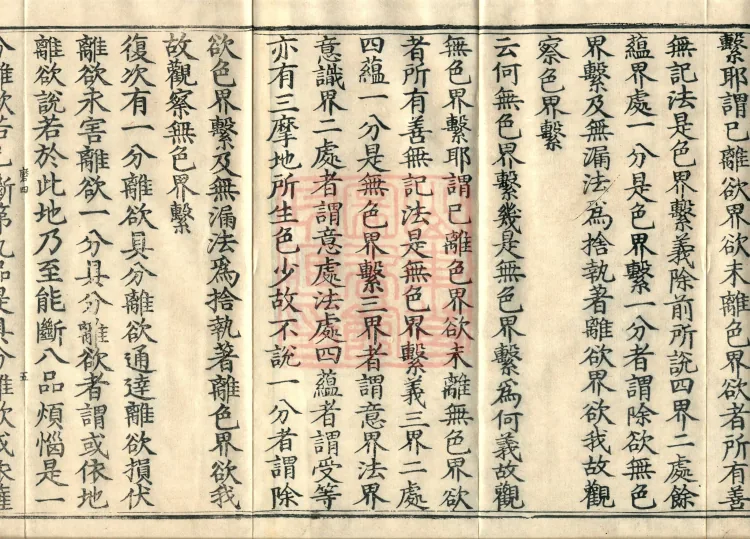 繫耶謂已離欲界欲未離色界欲者所有善
無記法是色界繫義除前所說四界二處餘
蘊界處一分是色界繫一分者謂除欲無色
界繫及無漏法為捨執著離欲界欲我故觀
察色界繫
云何無色界繫幾是無色界繫為何義故觀
無色界繫耶謂已離色界欲未離無色界欲
者所有善無記法是無色界繫義三界二處
四蘊一分是無色界繫三界者謂意界法界
意識界二處者謂意處法處四蘊者謂受等
亦有三摩地所生色少故不說一分者謂除
欲色界繫及無漏法為捨執著離色界欲我
故觀察無色界繫
復次有一分離欲具分離欲通達離欲損伏
離欲永害離欲一分具分離欲者謂或依地
離欲說若於此地乃至能斷八品煩惱是一
分離欲若已斷第九品是具分離欲或依薩